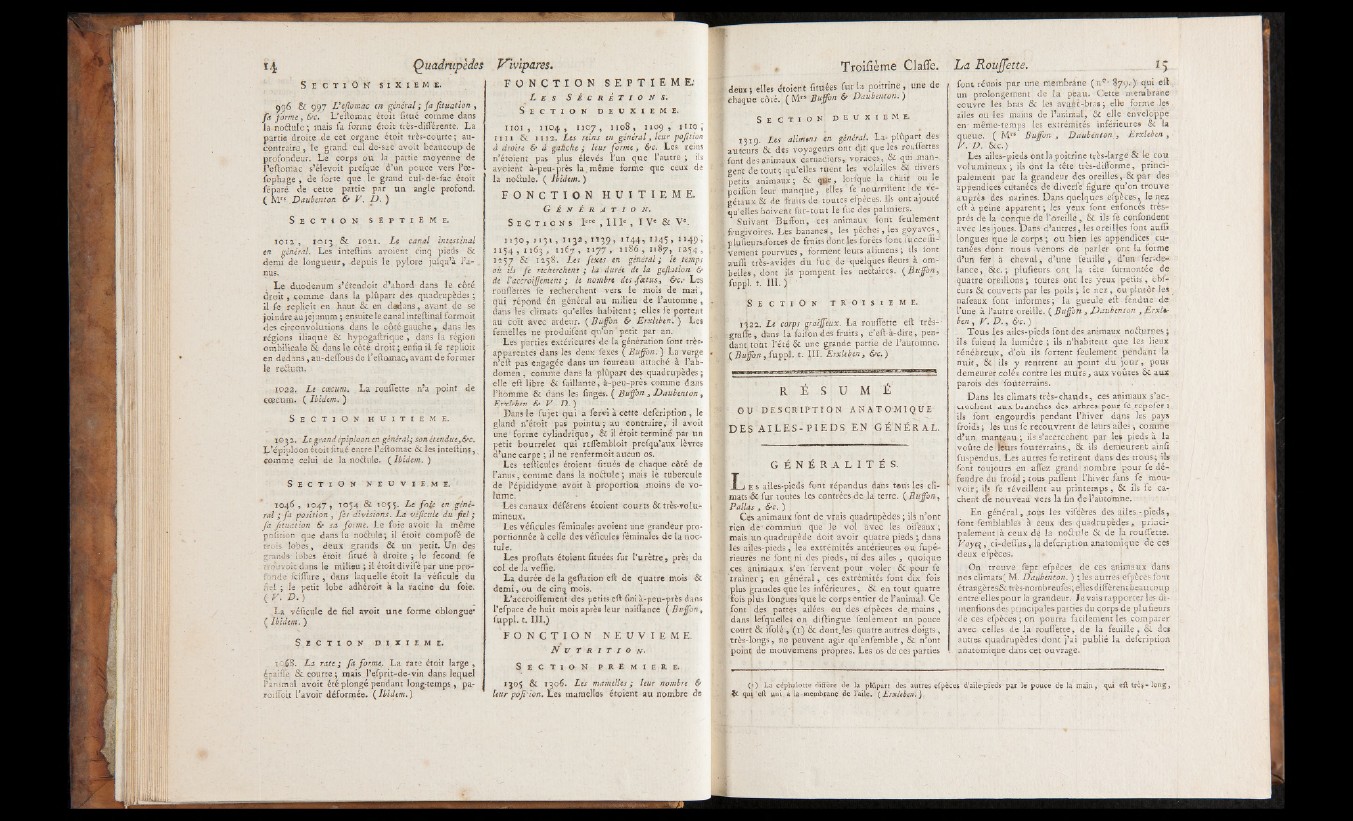 14 Quadrupèdes Vivipares.
SECTION SIXIEME.
996 & 997 L'estomac en général ; sa situation,
sa forme, &c. L'estomac étoit situé comme dans
la noctule ; mais sa forme étoit très-différente. La
partie droite de cet organe étoit très-courte ; au-
contraire, le grand cul-de-sac avoit beaucoup de
profondeur. Le corps ou la partie moyenne de
l'estomac s'élevoit presque d'un pouce vers l'œ-
sophage, de sorte que le grand cul-de-sac étoit
séparé de cette partie par un angle profond.
( Mrs Daubenton & V. D. )
SECTION SEPTIEME.
1012, 1013 & 1021. Le canal intestinal
en général. Les intestins avoient cinq pieds &
demi de longueur, depuis le pylore jusqu'à l'a-
nus.
Le duodenum s'étendoit d'abord dans le côté
droit, comme dans la plûpart des quadrupèdes ;
il se replioit en haut & en dedans, avant de se
joindre au jejunum ; ensuite le canal intestinal formoit
des circonvolutions dans le côté gauche, dans les
régions iliaque & hypogastrique, dans la région
ombilicale & dans le côté droit ; enfin il se replioit
en dedans, au-dessous de l'estomac, avant de former
le rectum.
1022. Le cœcum. La roussette n'a point de
cœcum. ( Ibidem. )
SECTION HUITIEME.
1032. Le grand épiploon en général ; son étendue, &c.
L'épiploon étoit situé entre l'estomac & les intestins,
comme celui de la noctule. ( Ibidem. )
SECTION NEUVIEME.
1046, 1047, 1054 & 1055. Le foie en géné-
ral ; sa position, ses divisions. La vésicule du fiel ;
sa situation & sa forme. Le foie avoit la même
position que dans la noctule ; il étoit composé de
trois lobes, deux grands & un petit. Un des
grands lobes étoit situé à droite ; le second se
trouvoit dans le milieu ; il étoit divisé par une pro-
fonde scissure, dans laquelle étoit la vésicule du
fiel ; le petit lobe adhéroit à la racine du foie.
( V. D. )
La vésicule de fiel avoit une forme oblongue
( Ibidem. )
SECTION DIXIEME.
1068. La rate ; sa forme. La rate étoit large,
épaisse & courte ; mais l'esprit-de-vin dans lequel
l'animal avoit été plongé pendant long-temps, pa-
roissoit l'avoir déformée. ( Ibidem. )
FONCTION SEPTIEME.
LES SÉCRÉTIONS.
SECTION DEUXIEME.
1101, 1104, 1107, 1108, 1109, 1110,
1111 & 1112. Les reins en général, leur position
à droite & à gauche ; leur forme, &c. Les reins
n'étoient pas plus élevés l'un que l'autre ; ils
avoient à-peu-près la même forme que ceux de
la noctule. ( Ibidem. )
FONCTION HUITIEME.
GÉNÉRATION.
SECTIONS Ire, IIIe, IVe & Ve.
1130, 1131, 1132, 1139, 1144, 1145, 1149,
1154, 1163, 1167, 1177, 1186, 1187, 1254,
1257 & 1258. Les sexes en général ; le temps
où ils se recherchent ; la durée de la gestation &
de l'accroissement ; le nombre des fœtus, &c. Les
roussettes se recherchent vers le mois de mai,
qui répond en général au milieu de l'automne,
dans les climats qu'elles habitent ; elles se portent
au coït avec ardeur. ( Buffon & Erxleben. ) Les
femelles ne produisent qu'un petit par an.
Les parties extérieures de la génération sont très-
apparentes dans les deux sexes ( Buffon. ) La verge
n'est pas engagée dans un fourreau attaché à l'ab-
domen, comme dans la plûpart des quadrupèdes ;
elle est libre & saillante, à-peu-près comme dans
l'homme & dans les singes. ( Buffon, Daubenton,
Erxleben & V. D. )
Dans le sujet qui a servi à cette description, le
gland n'étoit pas pointu ; au contraire, il avoit
une forme cylindrique, & il étoit terminé par un
petit bourrelet qui ressembloit presqu'aux lèvres
d'une carpe ; il ne renfermoit aucun os.
Les testicules étoient situés de chaque côté de
l'anus, comme dans la noctule ; mais le tubercule
de l'épididyme avoit à proportion moins de vo-
lume.
Les canaux déférens étoient courts & très-volu-
mineux.
Les vésicules séminales avoient une grandeur pro-
portionnée à celle des vésicules séminales de la noc-
tule.
Les prostats étoient situées sur l'urètre, près du
col de la vessie.
La durée de la gestation est de quatre mois &
demi, ou de cinq mois.
L'accroissement des petits est fini à-peu-près dans
l'espace de huit mois après leur naissance ( Buffon,
suppl. t. III.)
FONCTION NEUVIEME.
NUTRITION.
SECTION PREMIERE.
1305 & 1306. Les mamelles ; leur nombre &
leur position. Les mamelles étoient au nombre de
Troisième Classe. La Roussette. 15
deux ; elles étoient situées sur la poitrine, une de
chaque côté. ( Mrs Buffon & Daubenton. )
SECTION DEUXIEME.
1319. Les alimens en général. La plûpart des
auteurs & des voyageurs ont dit que les roussettes
sont des animaux carnaciers, voraces, & qui man-
gent de tout ; qu'elles tuent les volailles & divers
petits animaux ; & que, lorsque la chair ou le
poisson leur manque, elles se nourrissent de vé-
gétaux & de fruits de toutes espèces. Ils ont ajouté
qu'elles boivent sur-tout le suc des palmiers.
Suivant Buffon, ces animaux sont seulement
frugivores. Les bananes, les pêches, les goyaves,
plusieurs sortes de fruits dont les forêts sont successi-
vement pourvues, forment leurs alimens ; ils sont
aussi très-avides du suc de quelques fleurs à om-
belles, dont ils pompent les nectaires. ( Buffon,
suppl. t. III. )
SECTION TROISIEME.
1322. Le corps graisseux. La roussette est très-
grasse, dans la saison des fruits, c'est-à-dire, pen-
dant tout l'été & une grande partie de l'automne.
( Buffon, suppl. t. III. Erxleben, &c.)
RÉSUMÉ
OU DESCRIPTION ANATOMIQUE
DES AILES-PIEDS EN GÉNÉRAL.
GÉNÉRALITÉS.
LES ailes-pieds sont répandus dans tous les cli-
mats & sur toutes les contrées de la terre. ( Buffon,
Pallas, &c. )
Ces animaux sont de vrais quadrupèdes ; ils n'ont
rien de commun que le vol avec les oiseaux ;
mais un quadrupède doit avoir quatre pieds ; dans
les ailes-pieds, les extrémités antérieures ou supé-
rieures ne sont ni des pieds, ni des ailes, quoique
ces animaux s'en servent pour voler & pour se
traîner ; en général, ces extrémités sont dix fois
plus grandes que les inférieures, & en tout quatre
fois plus longues que le corps entier de l'animal. Ce
sont des pattes ailées ou des espèces de mains,
dans lesquelles on distingue seulement un pouce
court & isolé, (1) & dont les quatre autres doigts,
très-longs, ne peuvent agir qu'ensemble, & n'ont
point de mouvemens propres. Les os de ces parties
sont réunis par une membrane ( no. 879. ) qui est
un prolongement de la peau. Cette membrane
couvre les bras & les avant-bras ; elle forme les
ailes ou les mains de l'animal, & elle enveloppe
en même-temps les extrémités inférieures & la
queue. ( Mrs Buffon, Daubenton, Erxleben,
V. D. &c. )
Les ailes-pieds ont la poitrine très-large & le cou
volumineux ; ils ont la tête très-difforme, princi-
palement par la grandeur des oreilles, & par des
appendices cutanées de diverse figure qu'on trouve
auprès des narines. Dans quelques espèces, le nez
est à peine apparent ; les yeux sont enfoncés très-
près de la conque de l'oreille, & ils se confondent
avec les joues. Dans d'autres, les oreilles sont aussi
longues que le corps ; ou bien les appendices cu-
tanées dont nous venons de parler ont la forme
d'un fer à cheval, d'une feuille, d'un fer-de-
lance, &c. ; plusieurs ont la tête surmontée de
quatre oreillons ; toutes ont les yeux petits, obs-
curs & couverts par les poils ; le nez, ou plutôt les
naseaux sont informes ; la gueule est fendue de
l'une à l'autre oreille. ( Buffon, Daubenton, Erxle-
ben, V. D., &c. )
Tous les ailes-pieds sont des animaux nocturnes ;
ils fuient la lumière ; ils n'habitent que les lieux
ténébreux, d'où ils sortent seulement pendant la
nuit, & ils y rentrent au point du jour, pour
demeurer colés contre les murs, aux voûtes & aux
parois des souterrains.
Dans les climats très-chauds, ces animaux s'ac-
crochent aux branches des arbres pour se reposer :
ils sont engourdis pendant l'hiver dans les pays
froids ; les uns se recouvrent de leurs ailes, comme
d'un manteau ; ils s'accrochent par les pieds à la
voûte de leurs souterrains, & ils demeurent ainsi
suspendus. Les autres se retirent dans des trous ; ils
sont toujours en assez grand nombre pour se dé-
fendre du froid ; tous passent l'hiver sans se mou-
voir ; ils se réveillent au printemps, & ils se ca-
chent de nouveau vers la fin de l'automne.
En général, tous les viscères des ailes-pieds,
sont semblables à ceux des quadrupèdes, princi-
palement à ceux de la noctule & de la roussette.
Voyez, ci-dessus, la description anatomique de ces
deux espèces.
On trouve sept espèces de ces animaux dans
nos climats ( M. Daubenton. ) ; les autres espèces sont
étrangères & très-nombreuses ; elles diffèrent beaucoup
entr'elles pour la grandeur. Je vais rapporter les di-
mensions des principales parties du corps de plusieurs
de ces espèces ; on pourra facilement les comparer
avec celles de la roussette, de la feuille, & des
autres quadrupèdes dont j'ai publié la description
anatomique dans cet ouvrage.
(1) La céphalotte diffère de la plûpart des autres espèces d'aile-pieds par le pouce de la main, qui est très-long,
& qui est uni à la membrane de l'aile. ( Erxleben. )